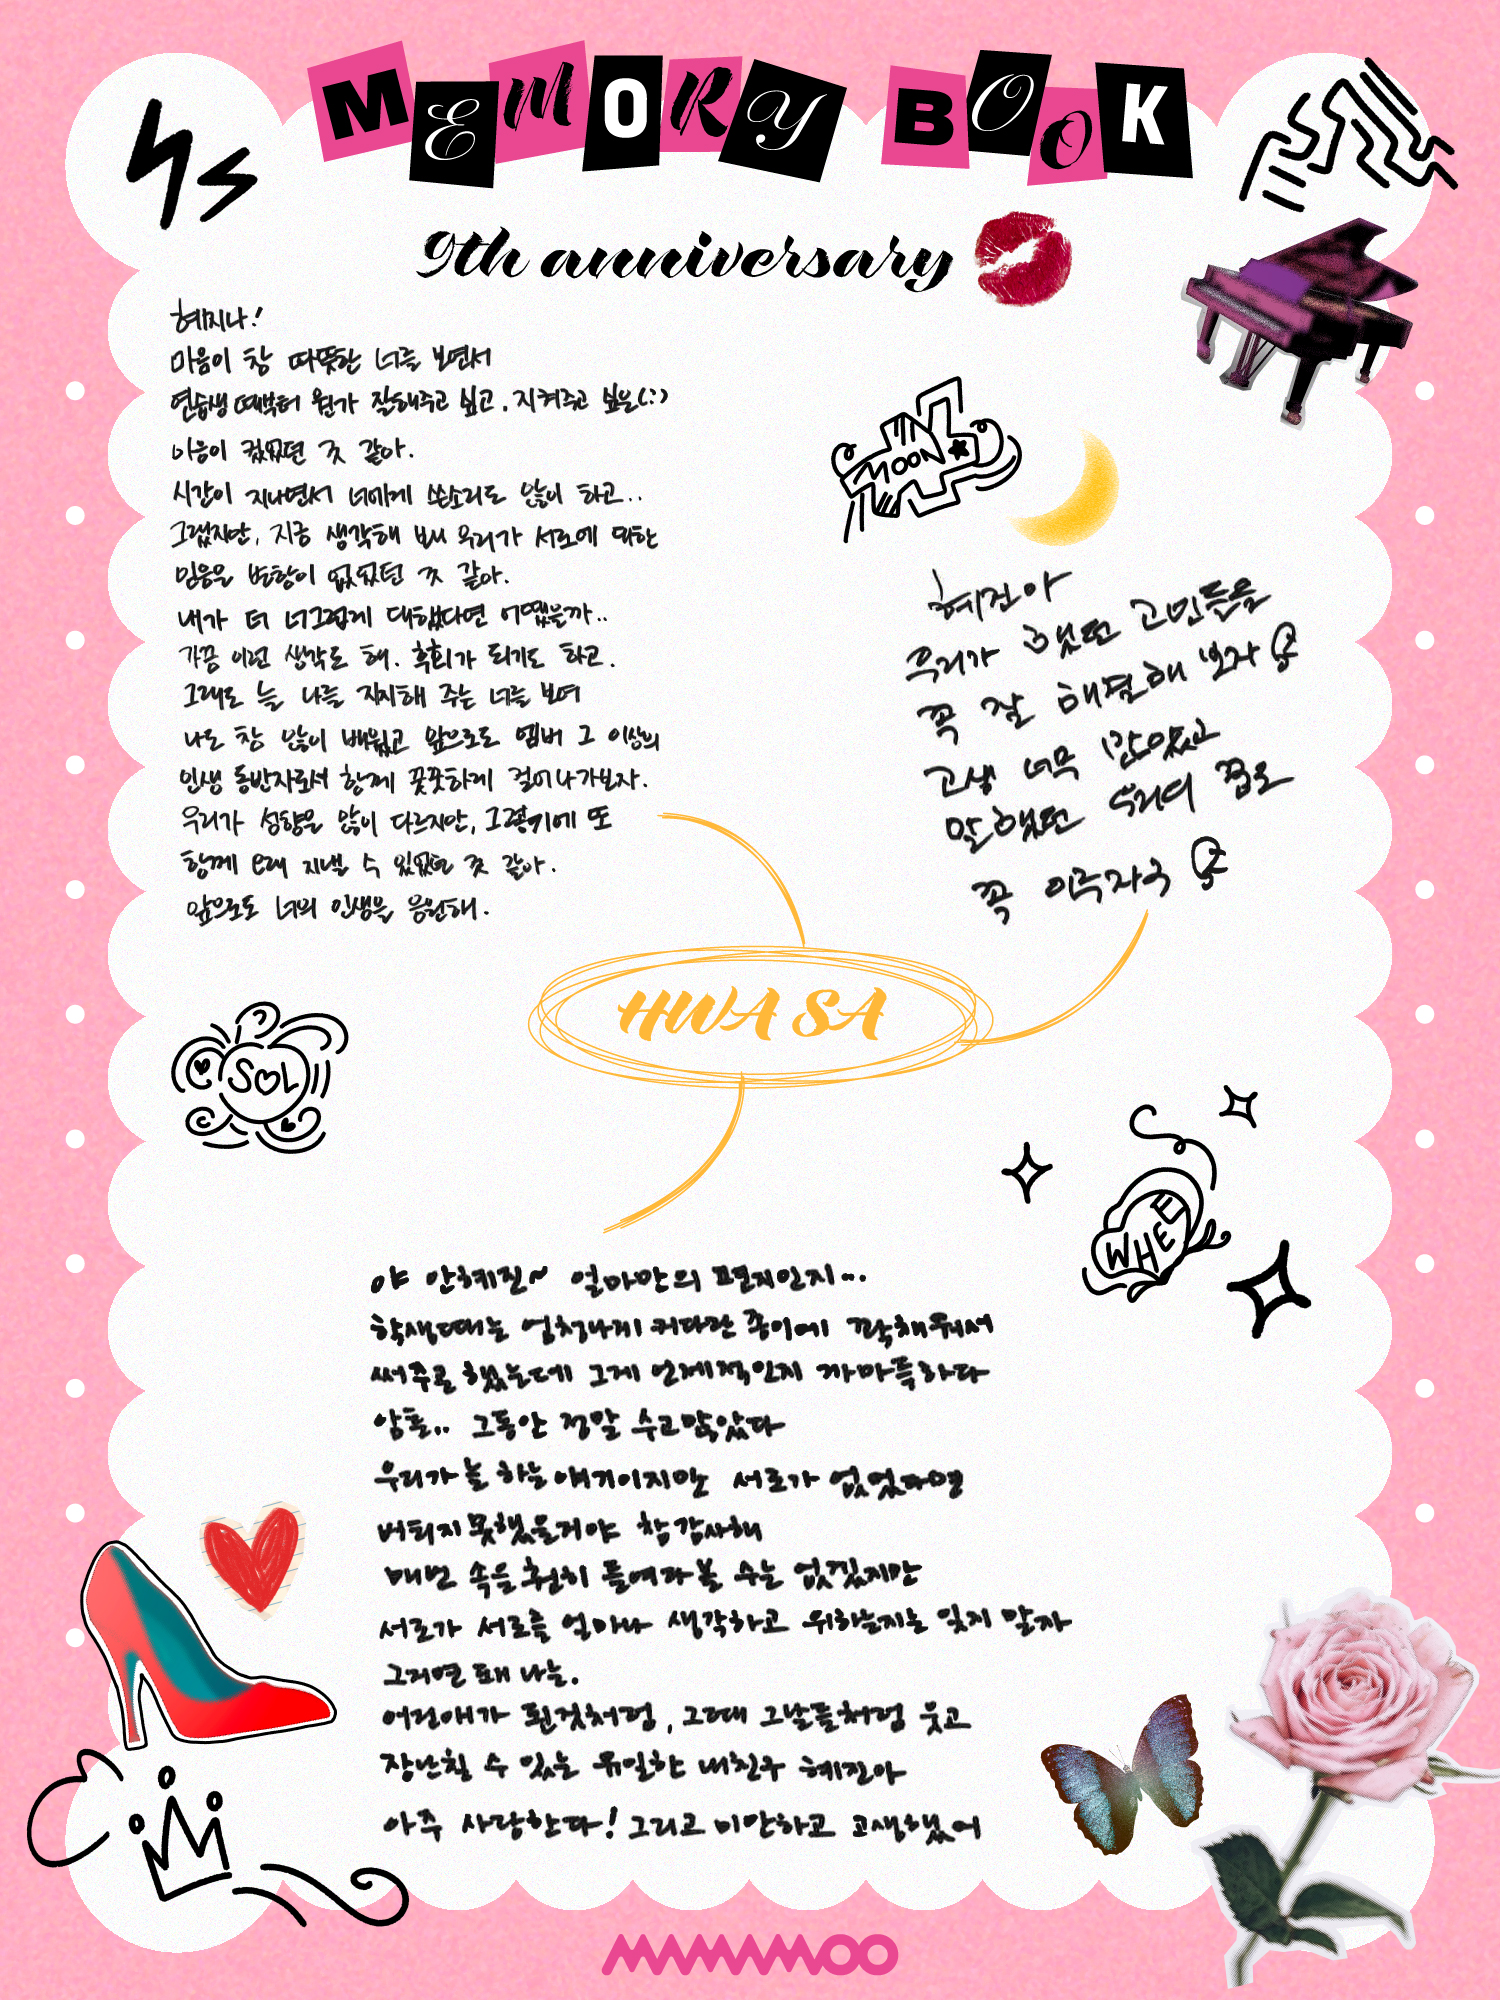 MEMORY BOOK
9th anniversary
HS
혜지나!
마음이 참 따뜻한 너를 보면서
연습생 때부터 뭔가 잘해주고 싶고, 지켜주고 싶은(:)
마음이 컸었던 것 같아.
시간이 지나면서 너에게 쓴소리도 많이 하고..
그랬지만, 지금 생각해 보니 우리가 서로에 대한
믿음은 변함이 없었던 것 같아.
내가 더 너그럽게 대했다면 어땠을까..
가끔 이런 생각도 해. 후회가 되기도 하고.
그래도 늘 나를 지지해 주는 너를 보며
나도 참 많이 배웠고 앞으로도 멤버 그 이상의
인생 동반자로서 함께 꿋꿋하게 걸어나가보자.
우리가 성향은 많이 다르지만, 그렇기에 또
함께 오래 지낼 수 있었던 것 같아.
앞으로도 너의 인생을 응원해.
MOON★
혜진아
우리가 했던 고민들을
꼭 잘 해결해 보자
고생 너무 많았고
말했던 우리의 꿈도
꼭 이루자구
HWA SA
SOL
WHEE
야 안혜진~ 얼마만의 편지인지...
학생때는 엄청나게 커다란 종이에 꽉채워서
써주곤 했는데 그게 언제적인지 까마득하다
암튼.. 그동안 정말 수고많았다
우리가 늘 하는 얘기이지만 서로가 없었다면
버티지 못했을거야 참 감사해
매번 속을 훤히 들여다볼 수는 없겠지만
서로가 서로를 얼마나 생각하고 위하는지는 잊지 말자
그러면 돼 나는.
어린애가 된것처럼, 그때 그날들처럼 웃고
장난칠 수 있는 유일한 내친구 혜진아
아주 사랑한다! 그리고 미안하고 고생했어
MAMAMOO